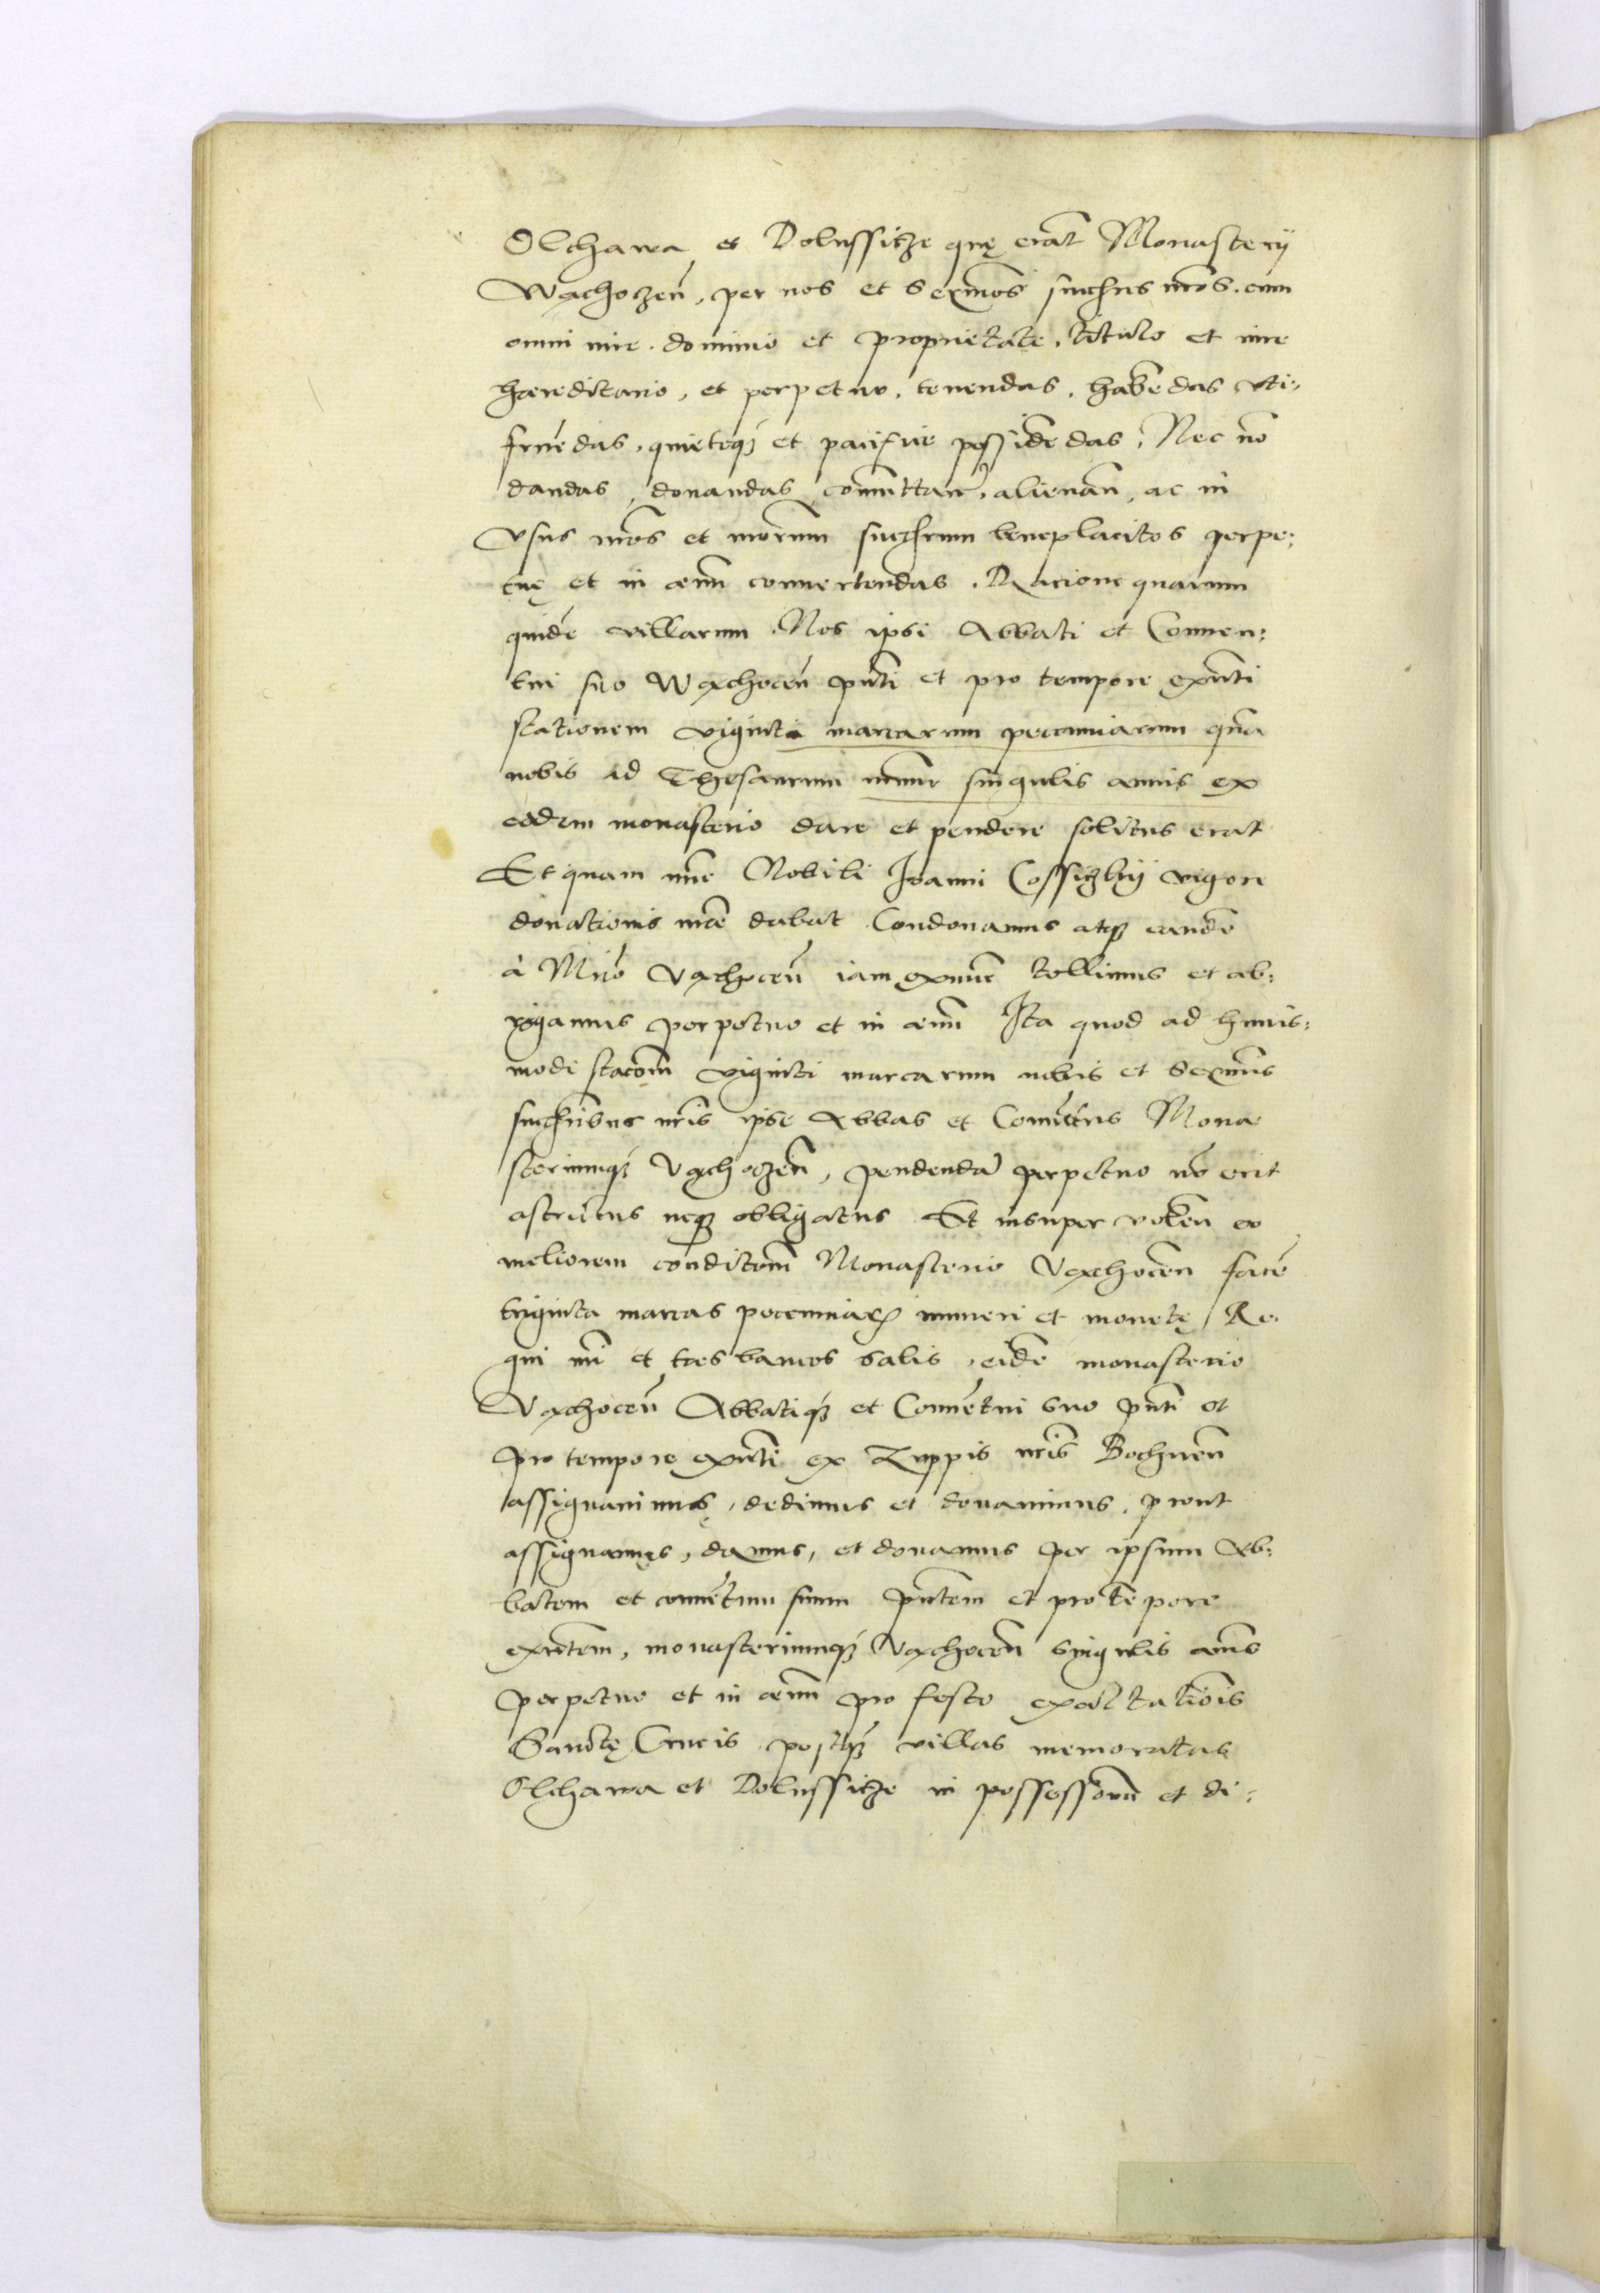 Olchawa et Dolussicze quę erāt Monasterij
Wachoczeń, per nos et Serm̄os succ̄res nr̄os, cum
omni iure, dominio et proprietate, titulo et iure
hæreditario, et perpetuo, tenendas, habēdas uti-
fruēdas, quieteq₃ et pacifice possidēdas, Nec nō
dandas, donandas, com̄uttan̄, alienan̄, ac in
vsus nr̄os et nr̄orum succ̄rum beneplacitos perpe-
tuę et in æuū conuertendas. Racione quarum
quidē villarum Nos ipsi Abbati et Conuen-
tui suo Wachoceń pn̄ti et pro tempore exn̄ti
stationem viginti marcarum pecuniarum quā
nobis ad Thesaurum nr̄um singulis annis ex
eodem monasterio dare et pendere solitus erat
Et quam nūc Nobili Joanni Cossiczkij vigore
donationis nr̄æ dabat Condonamus atq₃ eandē
à Mrīo Vachoceń iam exnūc tollimus et ab-
rogamus perpetuo et in æuū Ita quod ad huius-
modi stacōm viginti marcarum nobis et Serm̄is
succ̄ribus nr̄is ipse Abbas et Conuētus Mona
steriumq₃ Vachoczeń, pendendā perpetuo nō erit
astrictus neq₃ obligatus Et insuper volen̄ eo
meliorem conditōm Monasterio Vachoceń facē
triginta marcas pecuniar̄ numeri et monetę Re-
gni nr̄i et tres bancos salis, eidē monasterio
Vachoceń Abbatiq₃ et Conuētui suo pn̄ti et
pro tempore exn̄ti ex Zuppis nr̄is Bochneń
assignauimus, dedimus et donauimus, prout
assignamus, damus, et donamus per ipsum Ab-
batem et conuētum suum pn̄tem et pro tēpore
exn̄tem, monasteriumq₃ Vachoceń singulis annis
perpetuo et in æuū pro festo exaltationis
Sanctę Crucis postq₃ villas memoratas
Olchawa et Dolussicze in possessionē et di-